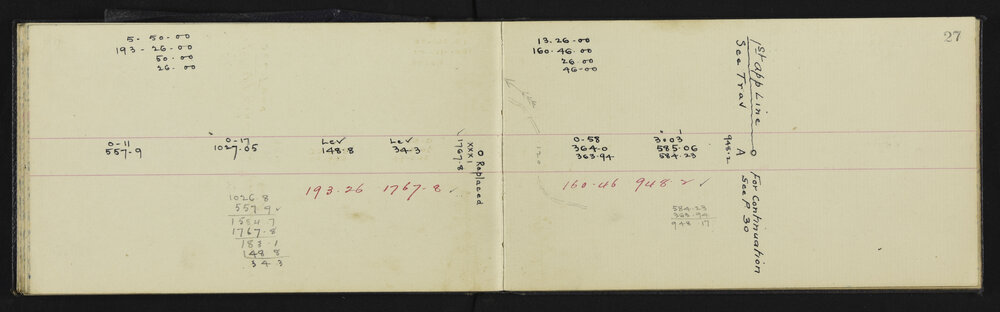 5- 50-00
193-26-00
50-00
26-00
0-11
557.9
0-17
1027.05
Lev
148.8
Lev
34.3
O Replaced
XXXI
1767.8
193.26 1767.8
1026.8
557.9
1584 7
1767.8
183.1
148 8
34.3
27
13.26-00
160.46-00
26-00
46-00
1st app Line
See Trav
120
0-58
364.0
363.94
585.06
584.23
948.2
O
A
160.46 948.2
584.23
363.94
948.17
For Continuation
See P 30